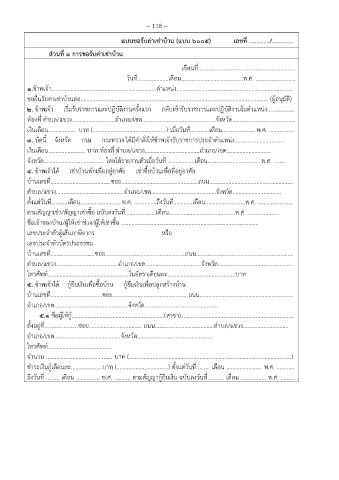 – 118 –
แบบขอรับค่าเช่าบ้าน (แบบ ๖๐๐๕) เลขที่ ............../..............
ส่วนที่ ๑ การขอรับค่าเช่าบ้าน
เขียนที่............................................
วันที่................เดือน................................พ.ศ. ....................
๑.ข้าพเจ้า............................................ตำแหน่ง............................................
ขอยื่นรับค่าเช่าบ้านต่อ............................................................ (ผู้อนุมัติ)
๒. ข้าพเจ้า เริ่มรับราชการและปฏิบัติงานครั้งแรก กลับเข้ารับราชการและปฏิบัติงานในตำแหน่ง................
ท้องที่ ตำบล/แขวง......................อำเภอ/เขต................................จังหวัด................................
เงินเดือน.............. บาท (................................) เมื่อวันที่ ..............เดือน.................. พ.ศ. ..............
๓. บัดนี้ จังหวัด กรม กระทรวง ได้มีคำสั่งให้ข้าพเจ้ารับราชการประจำตำแหน่ง..............................
เงินเดือน.................. บาท ท้องที่ ตำบล/แขวง..............................อำเภอ/เขต..............................
จังหวัด.............................. โดยได้รายงานตัวเมื่อวันที่ ..............เดือน............................ พ.ศ. ..........
๔. ข้าพเจ้าได้ เช่าบ้านพักเพื่ออยู่อาศัย เช่าซื้อบ้านเพื่อที่อยู่อาศัย
บ้านเลขที่..............................ซอย........................................ถนน..............................................
ตำบล/แขวง..................................อำเภอ/เขต..................................จังหวัด..............................
ตั้งแต่วันที่..........เดือน....................พ.ศ. ..............ถึงวันที่..........เดือน....................พ.ศ. ..............
ตามสัญญาเช่า/สัญญาเช่าซื้อ ฉบับลงวันที่................เดือน................................พ.ศ. ......................
ชื่อเจ้าของบ้าน/ผู้ให้เช่าช่วง/ผู้ให้เช่าซื้อ ............................................................
เลขประจำตัวผู้เสียภาษีอากร หรือ
เลขประจำตัวบัตรประชาชน
บ้านเลขที่......................ซอย........................................ถนน..............................................
ตำบล/แขวง..............................อำเภอ/เขต..............................จังหวัด..............................
โทรศัพท์........................................ในอัตราเดือนละ..............................บาท
๕. ข้าพเจ้าได้ กู้ยืมเงินเพื่อซื้อบ้าน กู้ยืมเงินเพื่อปลูกสร้างบ้าน
บ้านเลขที่..........................ซอย.................................... ถนน..............................................
อำเภอ/เขต......................................จังหวัด........................................
๕.๑ ชื่อผู้ให้กู้..................................................(สาขา)..................................................
ตั้งอยู่ที่..................ซอย............................ ถนน..............................ตำบล/แขวง......................
อำเภอ/เขต..................................จังหวัด........................................
โทรศัพท์..............................
จำนวน .................................. บาท (............................................................)
ชำระเงินกู้เดือนละ................บาท (............................) ตั้งแต่วันที่ ........ เดือน .................. พ.ศ. ..........
ถึงวันที่ ........ เดือน .............. พ.ศ. .......... ตามสัญญากู้ยืมเงิน ฉบับลงวันที่ ........ เดือน .............. พ.ศ. ..........